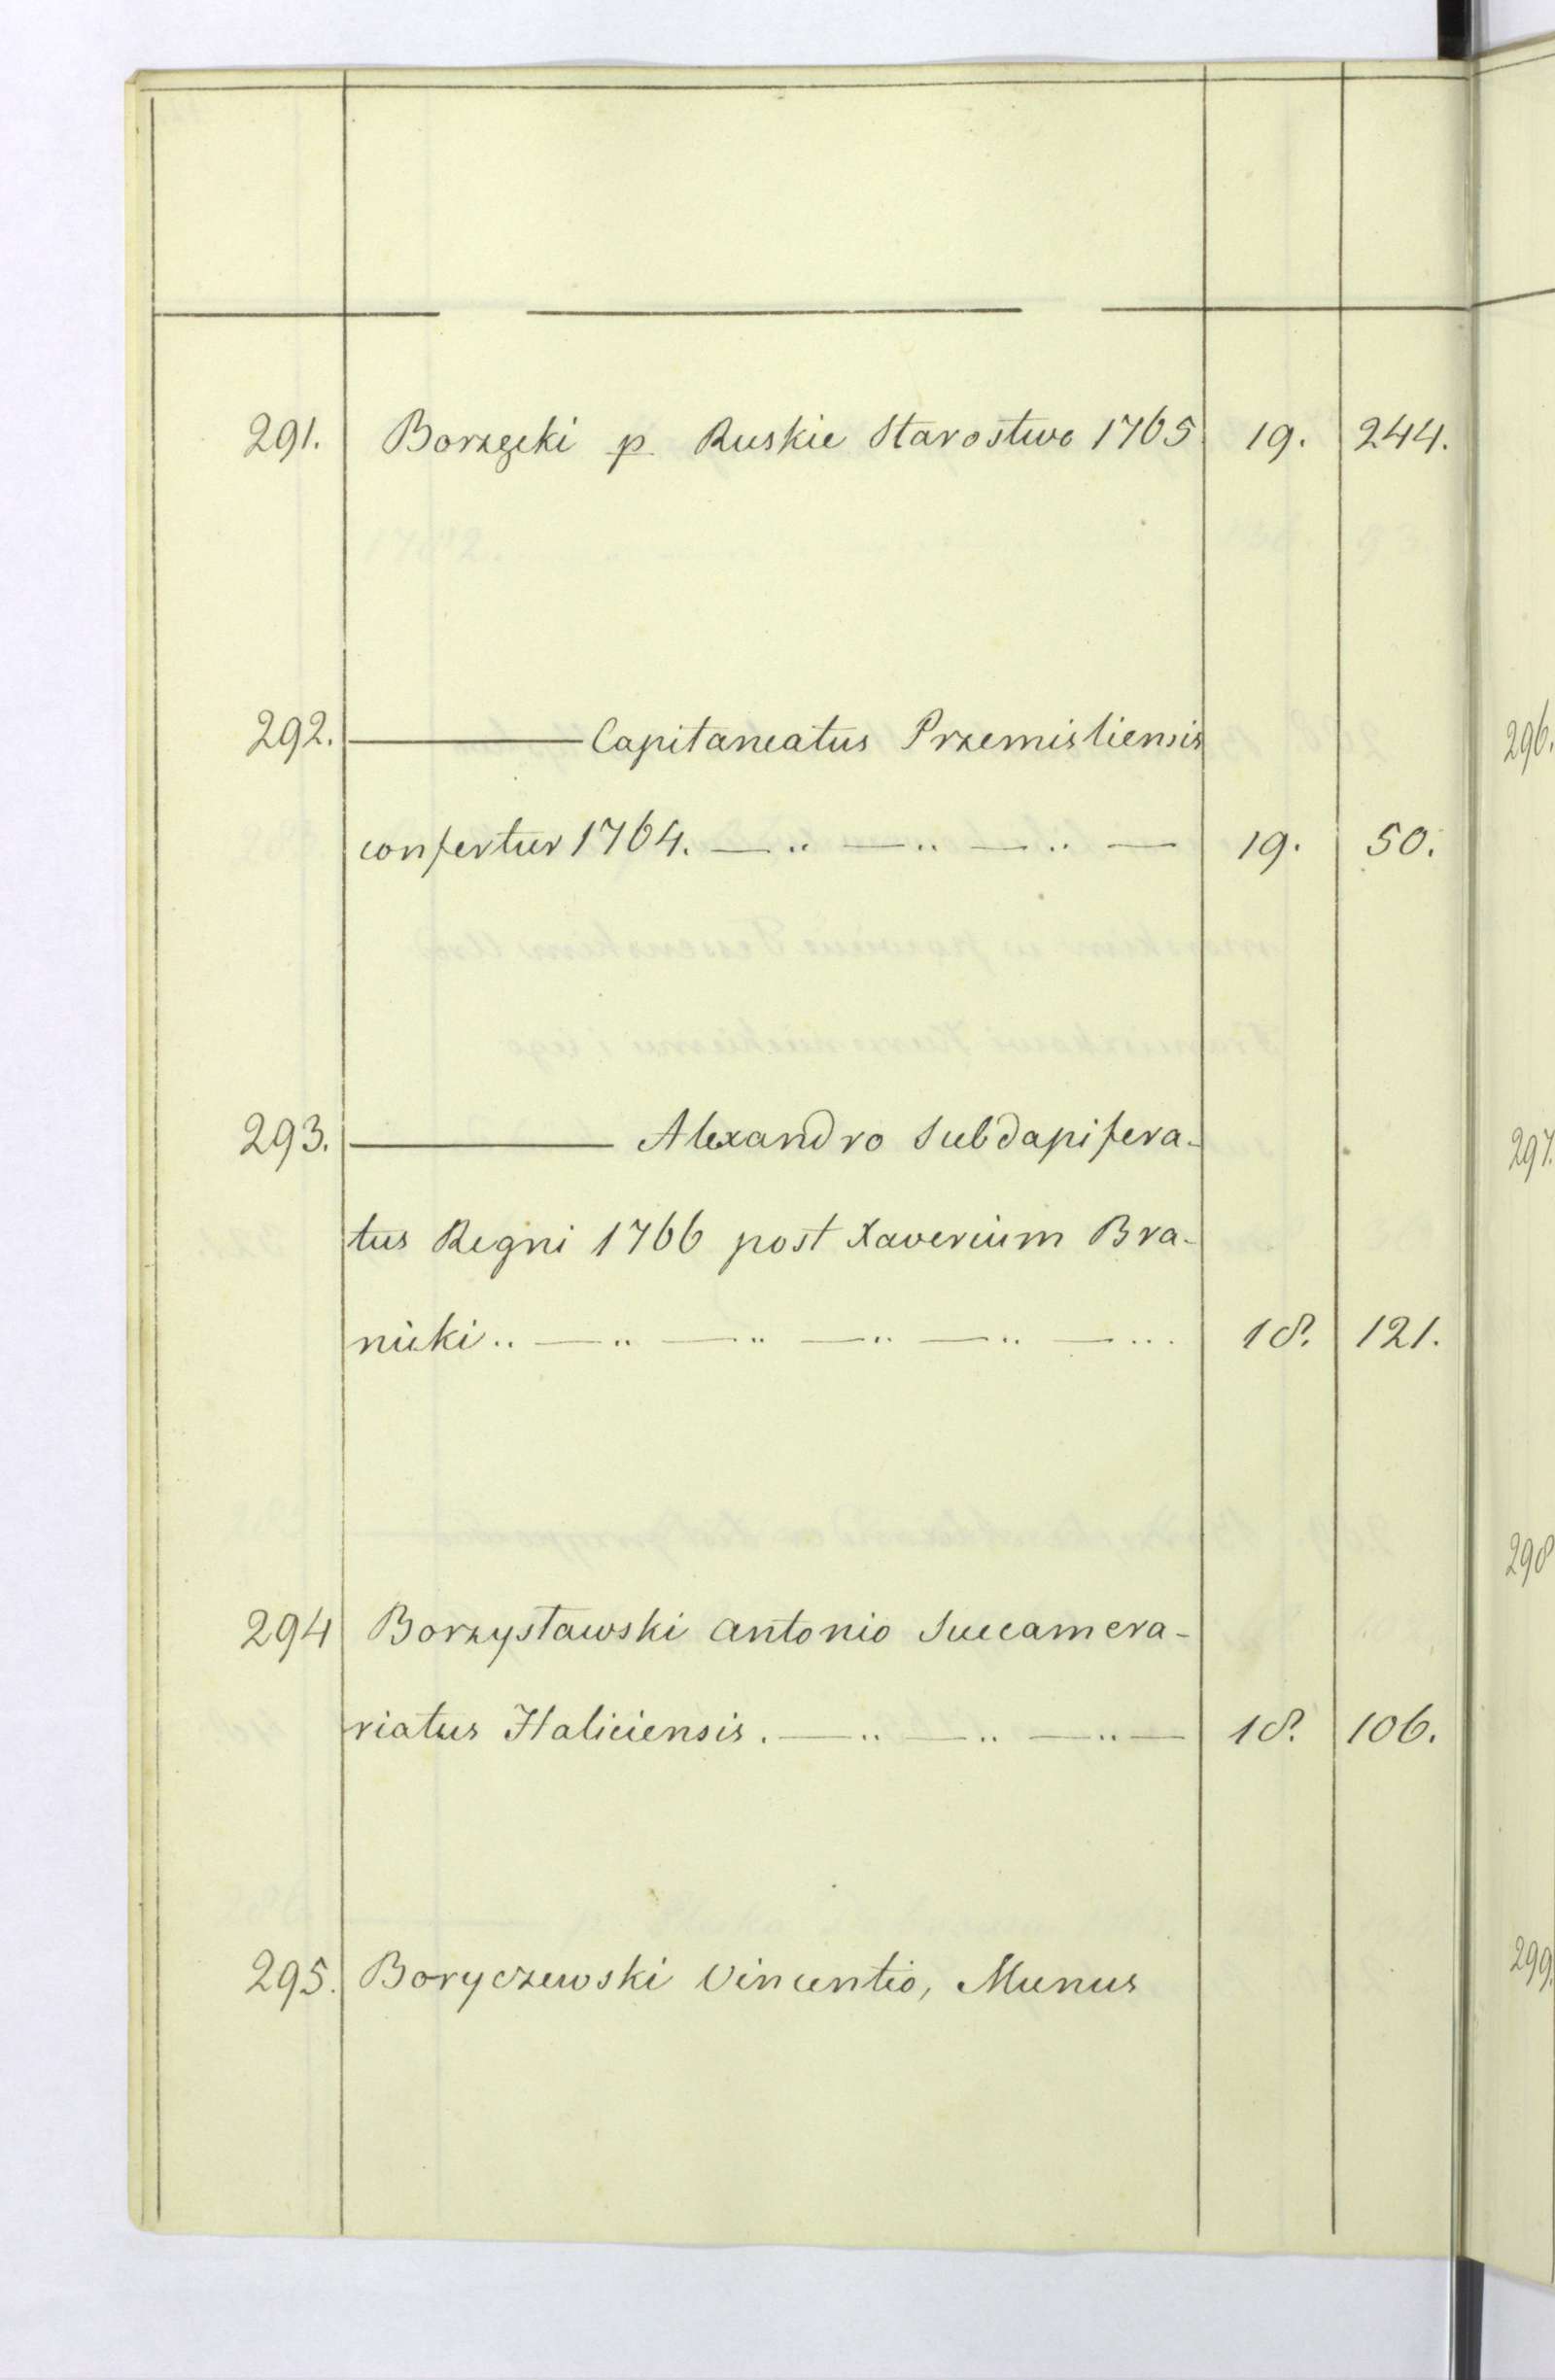 291. Borzęcki p. Ruskie Starostwo 1765 19. 244.
292. ——— Capitaneatus Przemisliensis
confertur 1764. — .. — .. — .. — 19. 50.
293. ——— Alexandro Subdapifera-
tus Regni 1766 post Xaverium Bra-
nicki .. — .. — .. — .. — .. — ... 18. 121.
294 Borzysławski Antonio Succamera-
riatus Haliciensis. — .. — .. — .. — 18. 106.
295. Boryczewski Vincentio, Munus
296.
297.
298
299.